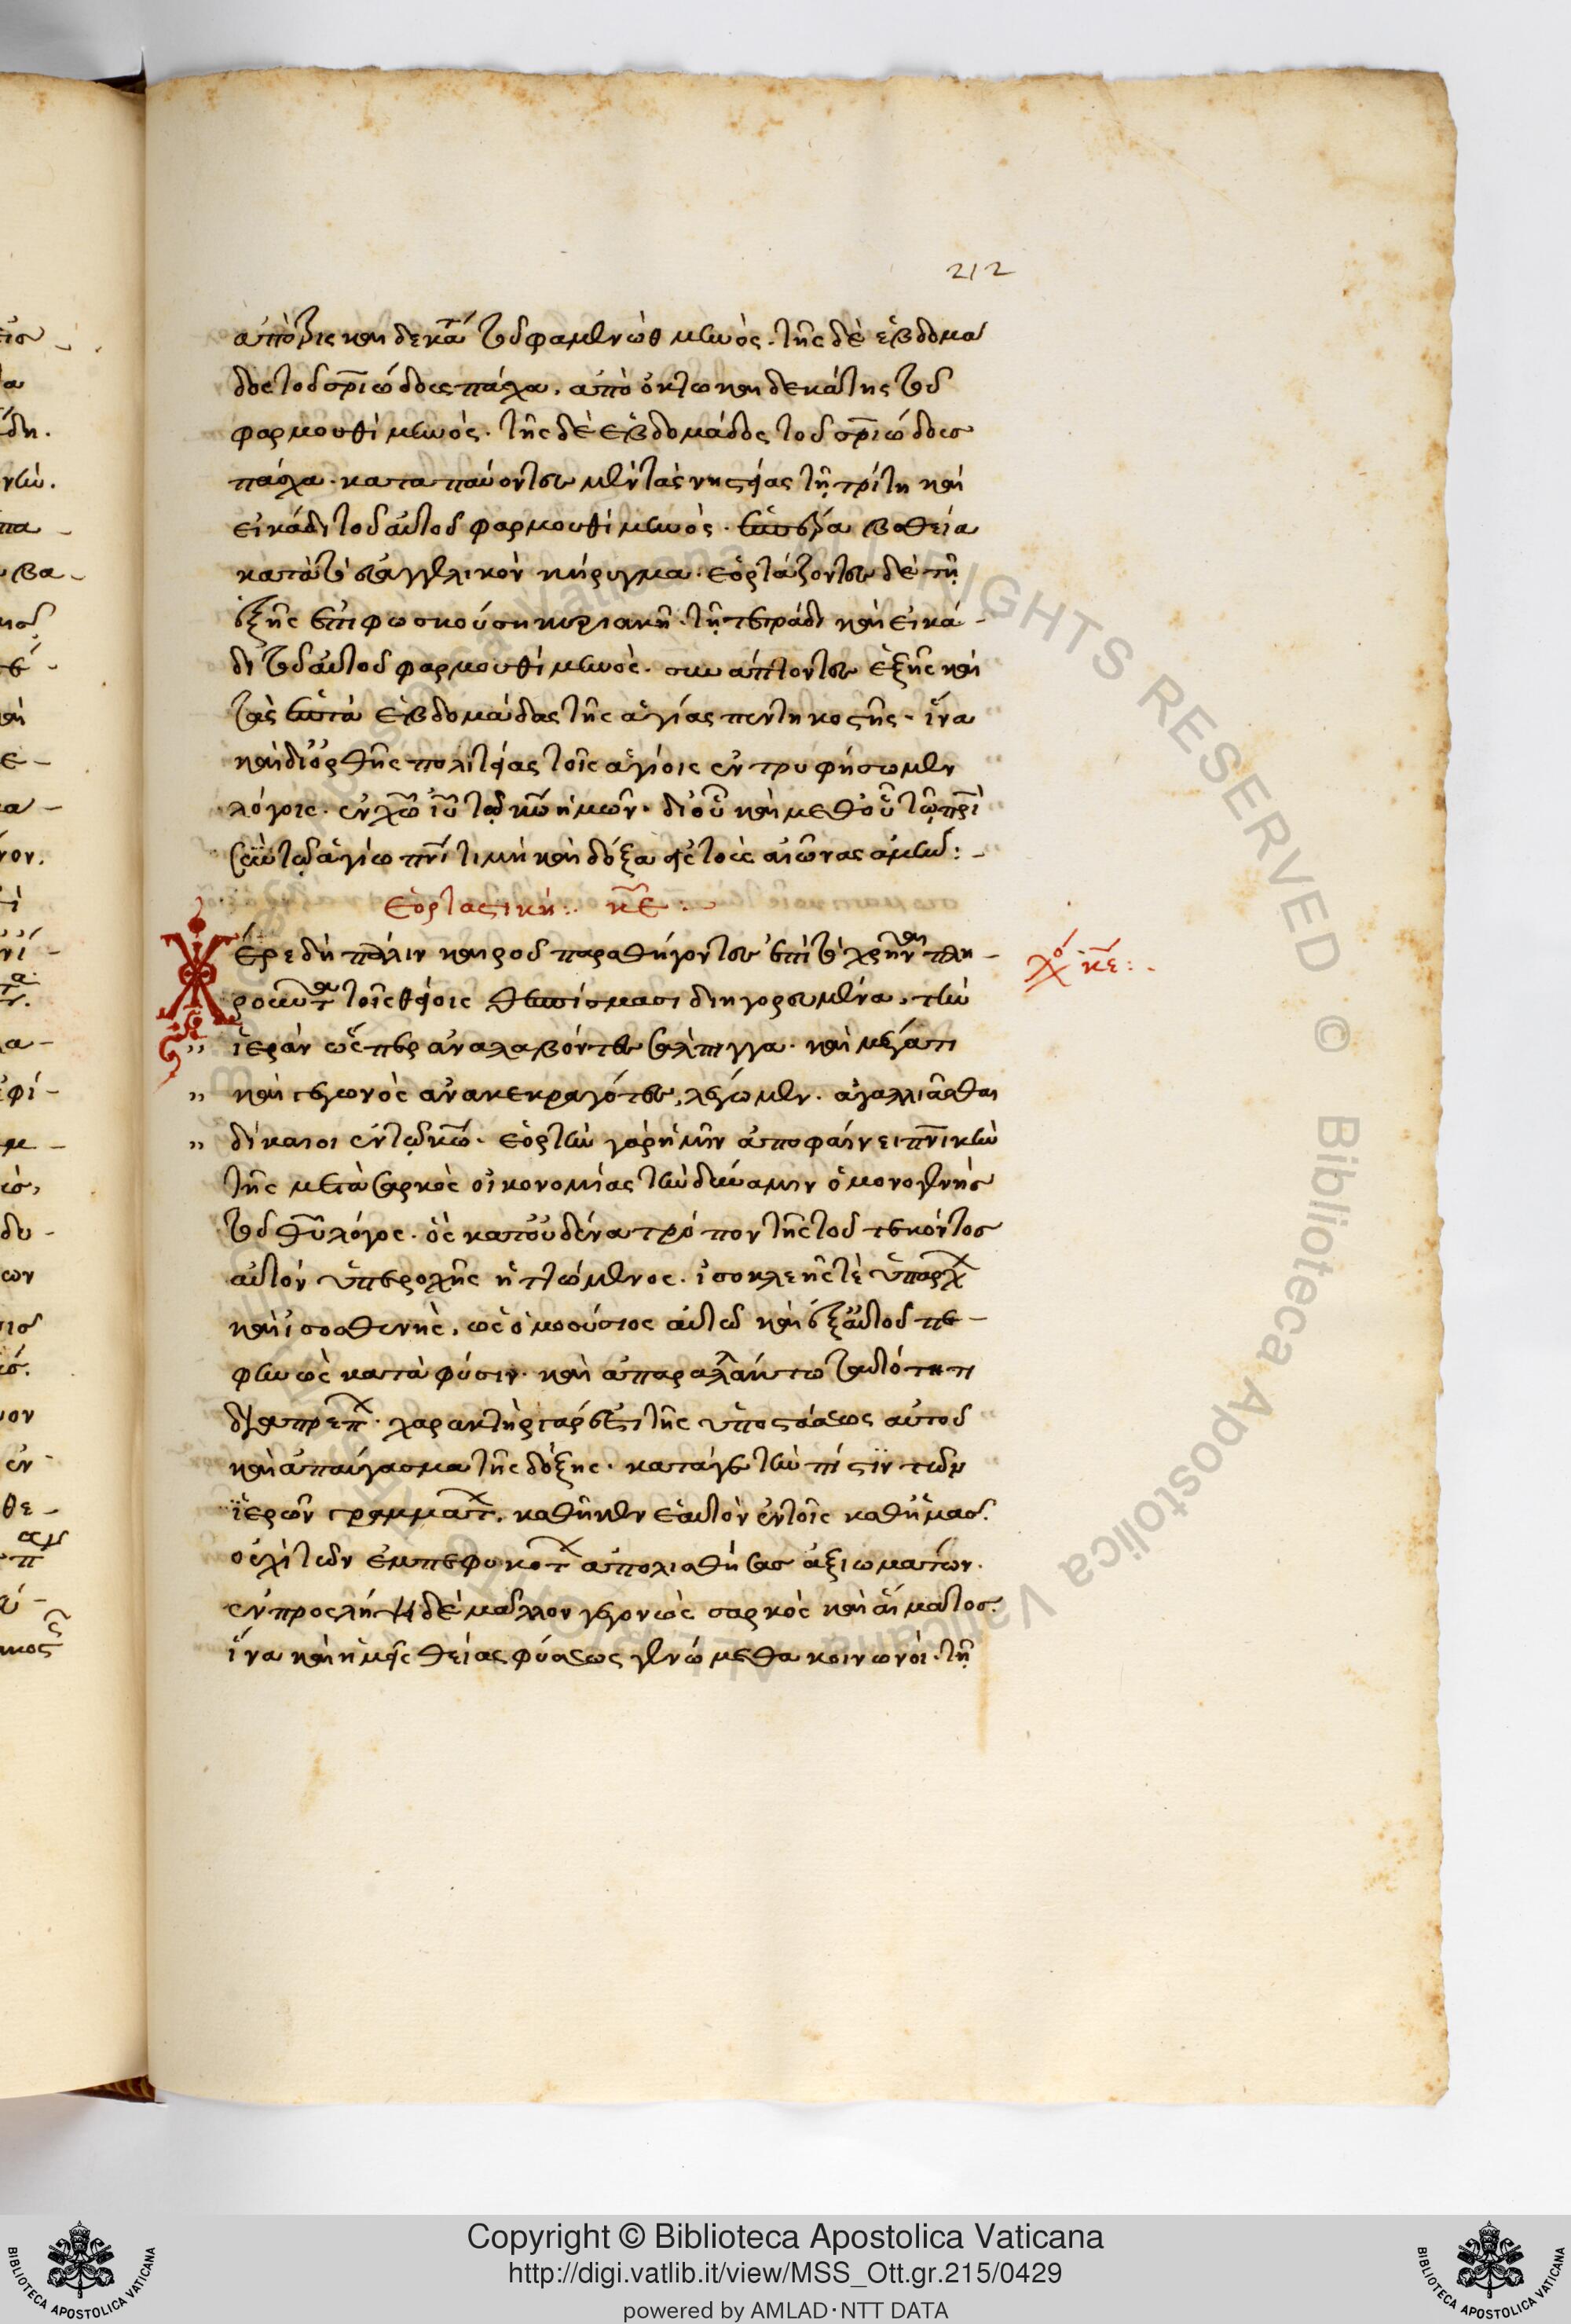 212
ἀπὸ τρις καὶ δεκάτ τοῦ φαμενὼθ μηνὸς. τῆς δὲ ἑβδομά
δος τοῦ σριώδους πάσχα. ἀπὸ ὀκτω και δεκάτης τοῦ
φαρμουθὶ μηνὸς. τῆς δὲ ἑβδομάδος τοῦ σριώδους
πάσχα. καταπαύοντες μὲν τὰς νηστείας τῇ τρίτῃ καὶ
εἰκάδι τοῦ αὐτοῦ φαρμουθὶ μηνὸς. ἑσπέρα βαθεία
κατὰ τὸ εὐαγγελικὸν κήρυγμα. ἑορτάζοντες δὲ τῇ
ἑξῆς ἐπιφωσκούσῃ κυριακῇ. τῇ τετράδι καὶ εἰκά-
δι τοῦ αὐτοῦ φαρμουθὶ μηνὸς. συνάπτοντες ἑξῆς καὶ
τὰς ἑπτὰ ἑβδομάδας τῆς ἁγίας πεντηκοστῆς. ἵνα
καὶ δι᾽ ὀρθῆς πολιτείας τοῖς ἁγίοις ἐντρυφήσωμεν
λόγοις. ἐν χῶ ἰῦ τῶ κῶ ἡμῶν. δι οὗ καὶ μεθ οὗ τῶ πρὶ
σὺν τῶ ἁγίω πνὶ τιμὴ καὶ δόξα εἰς τοὺς αἰῶνας ἀμήν:-
Ἑορταστικὴ:. κε:~
Φέρε δὴ πάλιν καιροῦ παραθήγοντος ἐπὶ τὸ χρῆναι πλη-
ροῦν τὰ τοῖς θείοις θεσπίσμασι διηγορευμένα. τὴν
ἱερὰν ὥσπερ ἀναλαβόντες σάλπιγγα. καὶ μέγα τι
καὶ γεγωνὸς ἀνακεκραγότες, λέγωμεν. ἀγαλλιᾶσθαι
δίκαιοι ἐν τῶ κῶ. ἑορτὴν γὰρ ἡμῖν ἀποφαίνει πνικὴν
τῆς μετὰ σαρκὸς οἰκονομίας τὴν δύναμιν ὁ μονογενὴς
τοῦ θῦ λόγος. ὃς κατ᾽ οὐδένα τρόπον τῆς τοῦ τεκόντος
αὐτὸν ὑπεροχῆς ἡττώμενος. ἰσοκλεής τὲ ὑπάρχ
καὶ ἰσοσθενὴς. ὡς ὁμοούσιος αὐτῶ καὶ ἐξ αὐτοῦ πε-
φυκὼς κατὰ φύσιν. καὶ ἀπαραλλάκτω ταυτότητι
διαπρέπ. χαρακτὴρ γάρ ἐστι τῆς ὑποστάσεως αὐτοῦ
καὶ ἀπαύγασμα τῆς δόξης. κατά γε τὴν πίστιν τῶν
ἱερῶν γραμμάτ. καθῆκεν ἑαυτὸν ἐν τοῖς καθ᾽ ἡμᾶς.
οὐχὶ τῶν ἐμπεφυκότ ἀπολισθήσας ἀξιωμάτων.
ἐν προσλήψει δὲ μᾶλλον γεγονὼς σαρκὸς καὶ αἵματος.
ἵνα καὶ ἡμεῖς θείας φύσεως γενώμεθα κοινωνοὶ. τῇ
λο κε:.
Copyright © Biblioteca Apostolica Vaticana
http://digi.vatlib.it/view/MSS_Ott.gr.215/0429
powered by AMLAD·NTT DATA